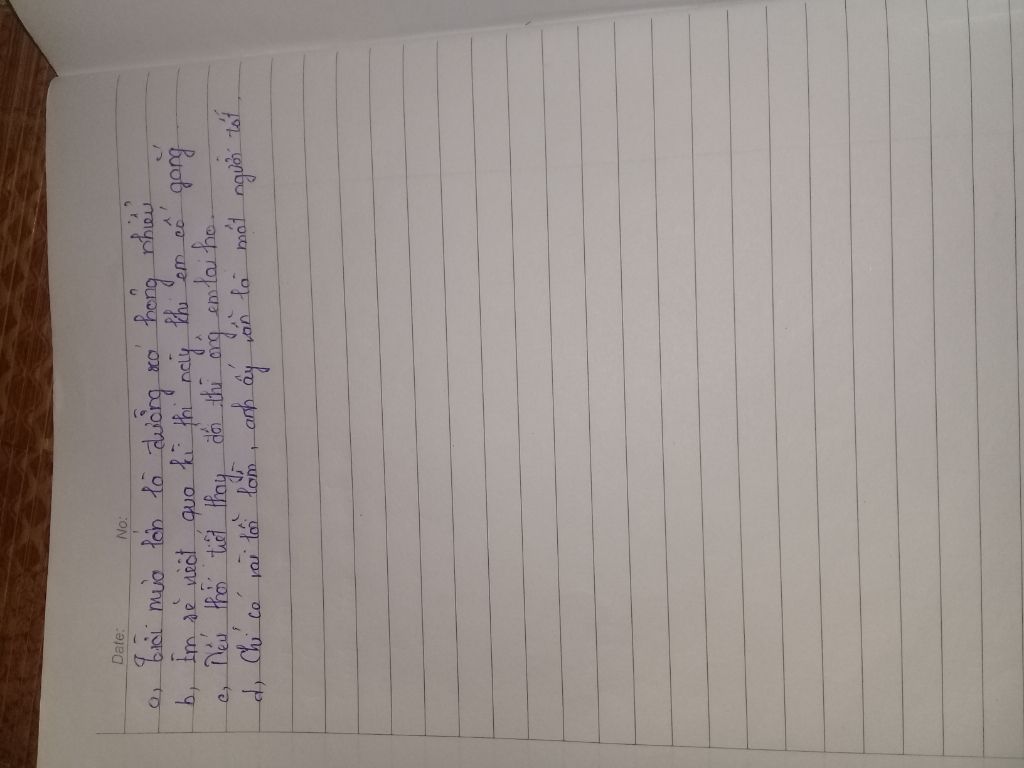 Date: No:
a, Trời mưa lớn là đường xá hỏng nhiều
b, Em sẽ vượt qua kì thi này khi em cố gắng
c, Nếu thời tiết thay đổi thì ông em lại ho.
d, Chỉ có vài lỗi lầm, anh ấy vẫn là một người tốt.